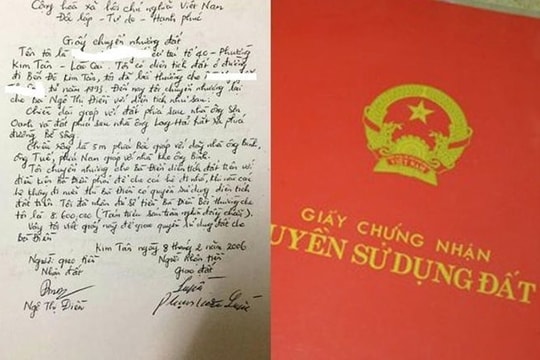 Cộng hòa xã hội chủ nghĩa Việt Nam
Độc lập - Tự do - Hạnh phúc
Giấy chuyển nhượng đất
Tên tôi là cư trú tổ 40 - Phường
Kim Tân - Lào Cai. Tôi có diện tích đất ở đường
đi Bến Đá Kim Tân, tôi đã bồi thường cho
từ năm 1993. Đến nay tôi chuyển nhượng lại
cho bà Ngô Thị Điền với diện tích như sau.
Chiều dài giáp về đất phía sau nhà ông Sơn
Oanh và đất phía sau nhà ông Long Hải hất xa phía
đường Bê tông.
Chiều rộng là 5m phía Bắc giáp với dãy nhà ông Bình,
ông Tuế, phía Nam giáp với nhà khu ông Bình.
Tôi chuyển nhượng cho Bà Điền diện tích đất trên với
điều kiện Bà Điền phải để cho các hộ đi nhờ, khi nào các
hộ không đi nữa thì Bà Điền có quyền sử dụng diện tích
đất trên. Tôi đã nhận đủ số tiền Bà Điền Bồi thường cho
tôi là 8.600.000 (Tám triệu sáu trăm nghìn đồng chẵn).
Vậy tôi viết giấy này để giao quyền sử dụng đất cho
bà Điền
Kim Tân ngày 8 tháng 2 năm 2006
Người giao tiền Người Nhận tiền
Nhận đất giao đất
Ngô Thị Điền
VIỆT NAM
GIẤY CHỨNG NHẬN
UYỀN SỬ DỤNG ĐẤT